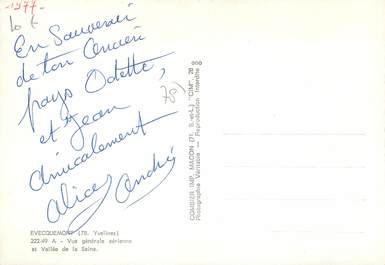 -1977-
10 €
En Souvenir
de ton Ancien
pays Odette,
et Jean
Amicalement
Alice André
78)
EVECQUEMONT (78. Yvelines)
222-49 A - Vue générale aérienne
et Vallée de la Seine.
COMBIER IMP. MACON (71. S.-et-L.) "CIM" 28 000
Photographie Véritable - Reproduction Interdite